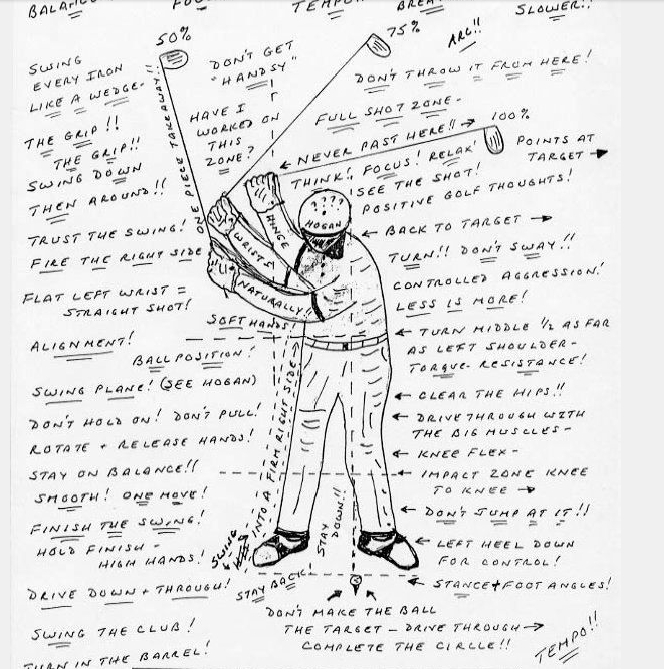 BALANCE
TEMPO
SLOWER!!
50%
75%
ARC!!
SWING
EVERY IRON
LIKE A WEDGE-
DON'T GET
"HANDSY"
DON'T THROW IT FROM HERE!
ONE PIECE TAKEAWAY!!
HAVE I
WORKED ON
THIS
ZONE?
FULL SHOT ZONE-
100%
THE GRIP!!
THE GRIP!!
NEVER PAST HERE!!
POINTS AT
TARGET
THINK! FOCUS! RELAX!
SWING DOWN
THEN AROUND!!
SEE THE SHOT!
POSITIVE GOLF THOUGHTS!
! ???
HOGAN
HINGE
WRISTS
NATURALLY!
BACK TO TARGET
TRUST THE SWING!
FIRE THE RIGHT SIDE
TURN!! DON'T SWAY!!
CONTROLLED AGGRESSION!
LESS IS MORE!
FLAT LEFT WRIST =
STRAIGHT SHOT!
SOFT HANDS!
TURN MIDDLE 1/2 AS FAR
AS LEFT SHOULDER-
TORQUE- RESISTANCE!
ALIGNMENT!
BALL POSITION!
SWING PLANE! (SEE HOGAN)
CLEAR THE HIPS!!
DRIVE THROUGH WITH
THE BIG MUSCLES-
DON'T HOLD ON! DON'T PULL!
ROTATE + RELEASE HANDS!
KNEE FLEX-
STAY ON BALANCE!!
IMPACT ZONE KNEE
TO KNEE
SMOOTH! ONE MOVE!
FINISH THE SWING!
DON'T JUMP AT IT!!
HOLD FINISH-
HIGH HANDS!
SWING
INTO A FIRM RIGHT SIDE
STAY
DOWN!!
LEFT HEEL DOWN
FOR CONTROL!
DRIVE DOWN + THROUGH!
STAY BACK
STANCE + FOOT ANGLES!
DON'T MAKE THE BALL
THE TARGET - DRIVE THROUGH
COMPLETE THE CIRCLE!!
SWING THE CLUB!
TURN IN THE BARREL!
TEMPO!!